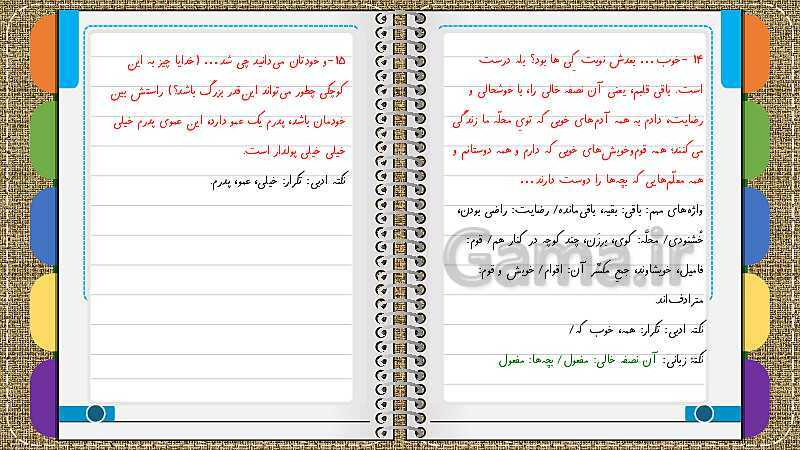 ۱۴ -خوب... بعدش نوبت کی ها بود؟ بله درست
است. باقی قلبم، یعنی آن نصفه خالی را، با خوشحالی و
رضایت، دادم به همه آدم‌های خوبی که توی محلّه ما زندگی
می‌کنند؛ همه قوم‌وخویش‌های خوبی که دارم و همه دوستانم و
همه معلّم‌هایی که بچه‌ها را دوست دارند...
واژه‌های مهم: باقی: بقیه، باقی‌مانده/ رضایت: راضی بودن،
خُشنودی/ محلّه: کوی، برزَن، چند کوچه در کنار هم/ قوم:
فامیل، خویشاوند، جمع مکسّر آن: اقوام/ خویش و قوم:
مترادف‌اند.
نکته ادبی: تکرار: همه، خوب که/
نکتهٔ زبانی: آن نصفه خالی: مفعول/ بچه‌ها: مفعول
۱۵-و خودتان می‌دانید چی شد... (خدایا چیز به این
کوچکی چطور می‌تواند این‌قدر بزرگ باشد؟) راستش بین
خودمان باشد، پدرم یک عمو دارد، این عموی پدرم خیلی
خیلی خیلی پولدار است.
نکته ادبی: تکرار: خیلی، عمو، پدرم.
Gama.ir